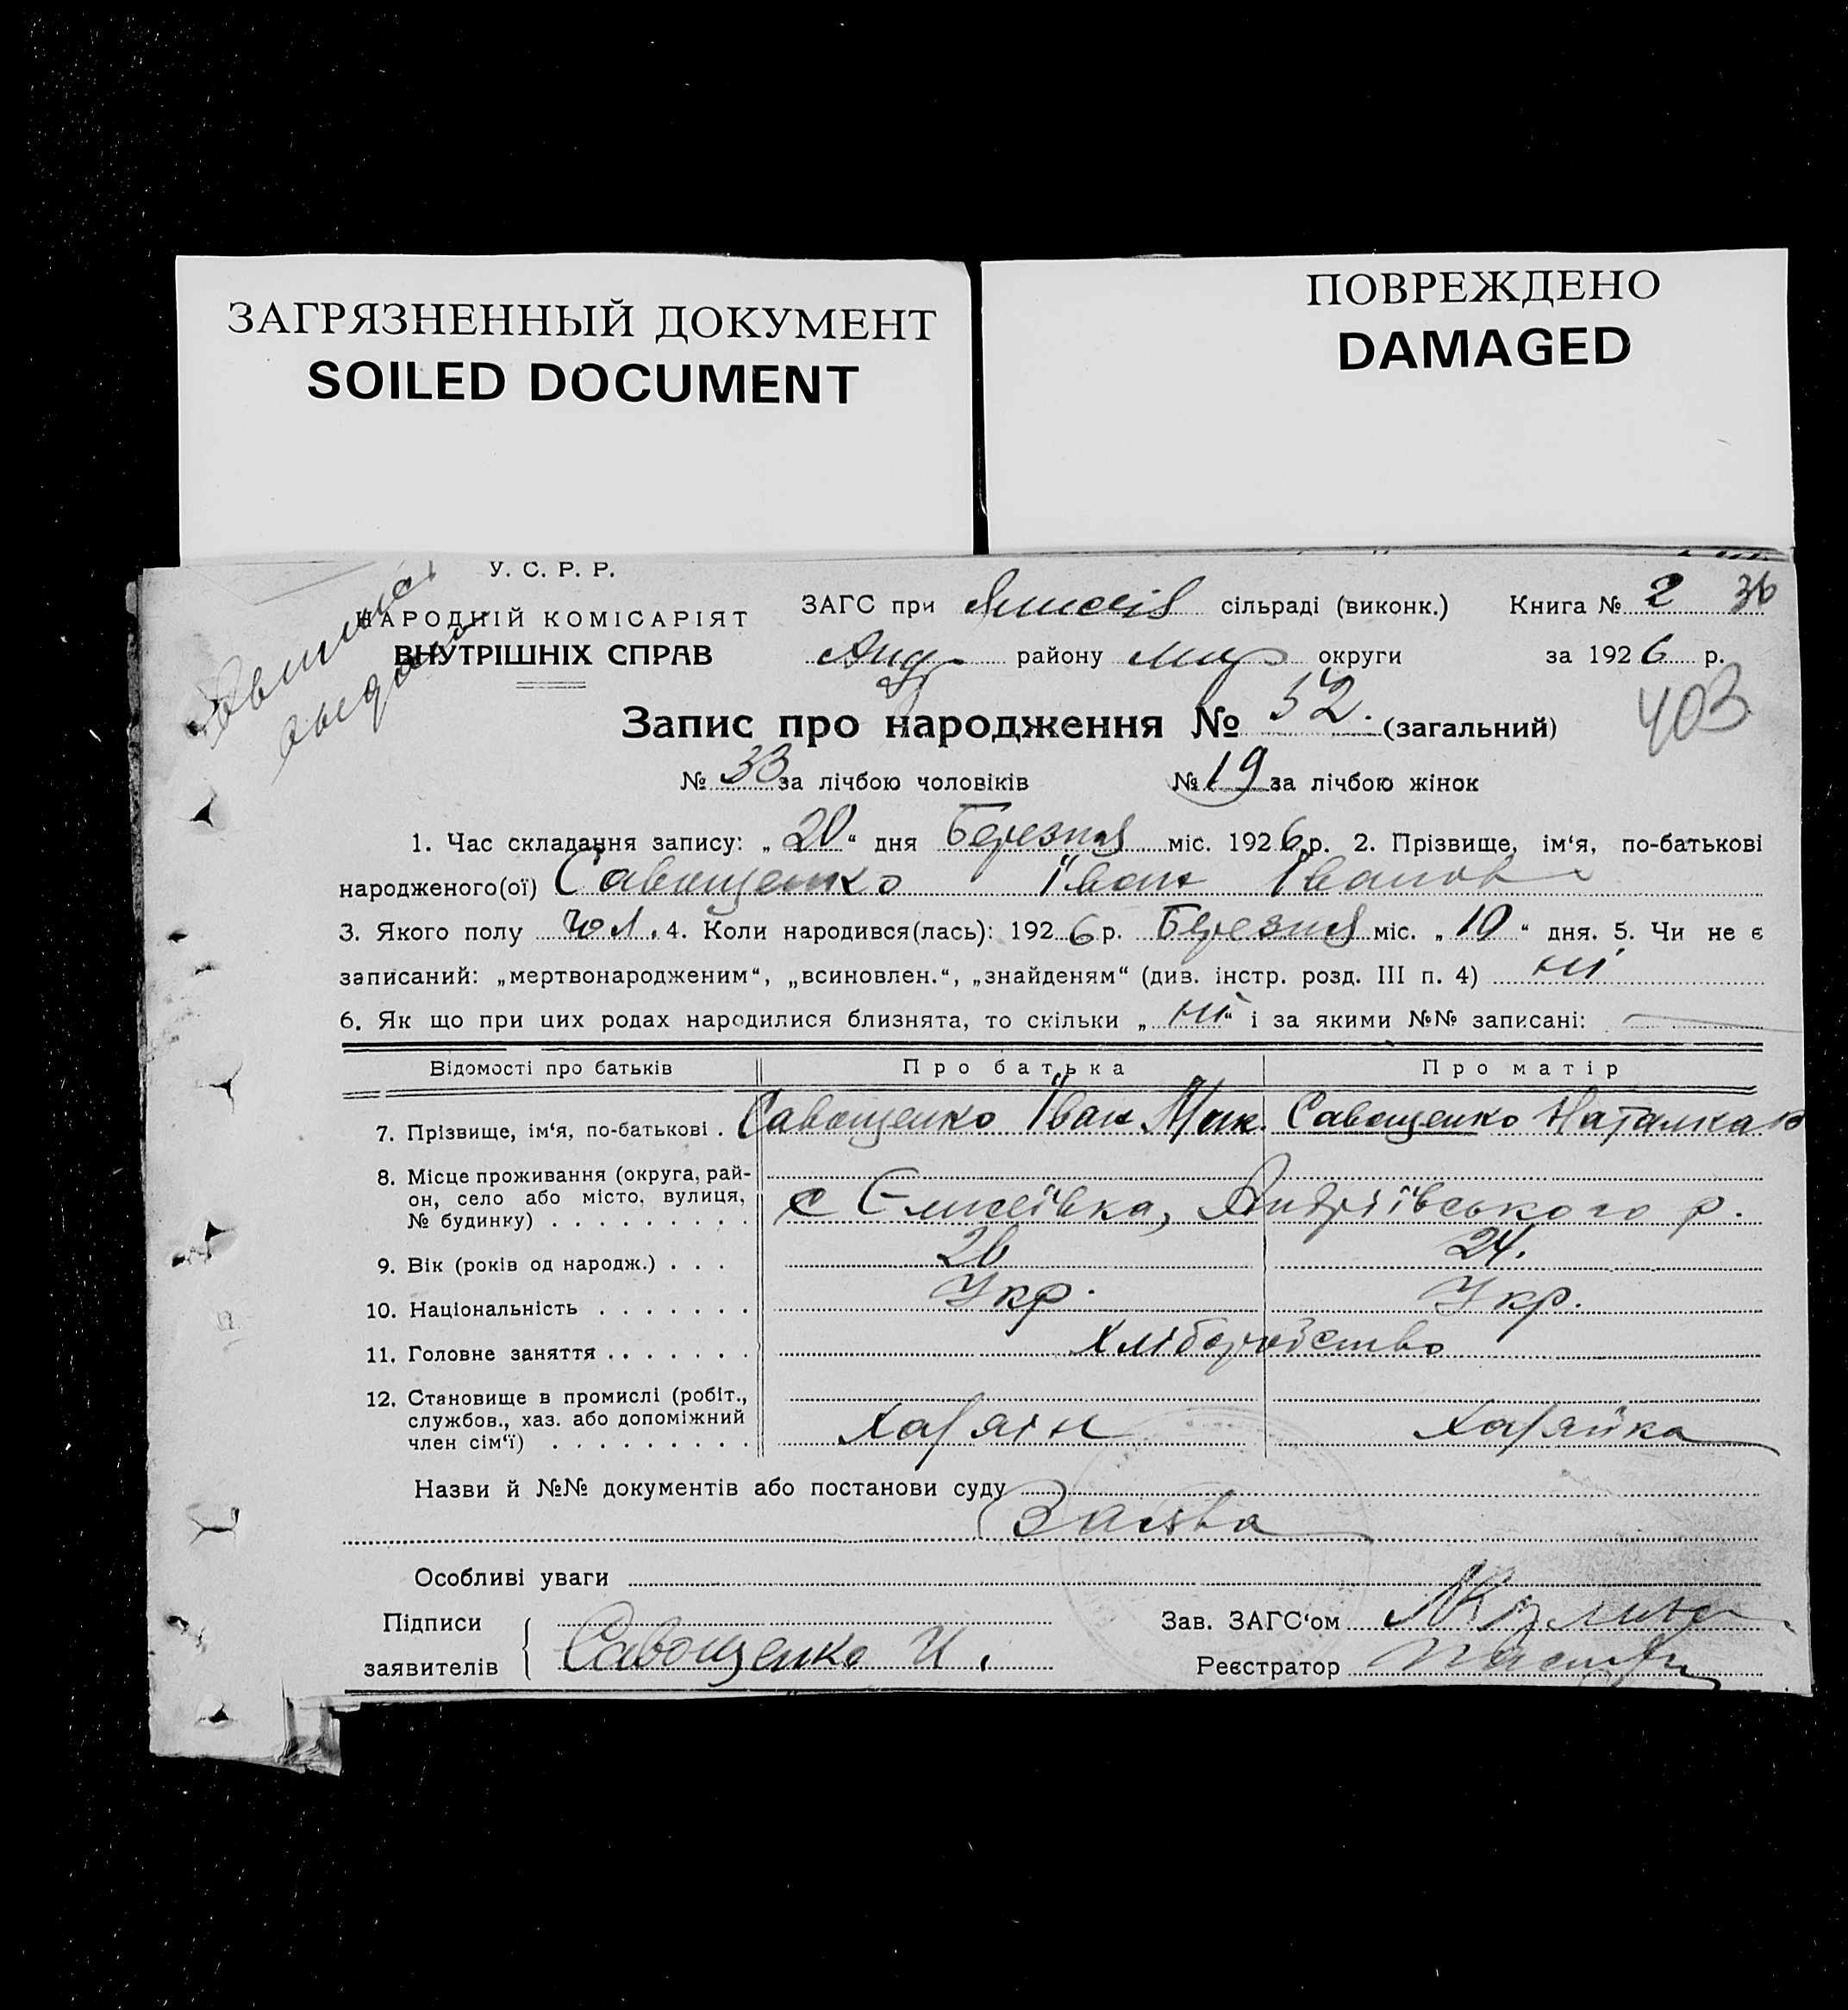 ЗАГРЯЗНЕННЫЙ ДОКУМЕНТ
SOILED DOCUMENT
ПОВРЕЖДЕНО
DAMAGED
У. С. Р. Р.
НАРОДНІЙ КОМІСАРІЯТ
ВНУТРІШНІХ СПРАВ
ЗАГС при сільраді (виконк.) Книга № 2 36
Анд району округи за 1926 р.
403
Запис про народження № 52. (загальний)
№ 33 за лічбою чоловіків № 19 за лічбою жінок
1. Час складання запису: „ 20 “ дня Березня міс. 1926 р. 2. Прізвище, ім‘я, по-батькові
народженого(ої) Савощенко Іван Іванов
3. Якого полу чол. 4. Коли народився(лась): 1926 р. Березня міс. „ 10 “ дня. 5. Чи не є
записаний: „мертвонародженим“, „всиновлен.“, „знайденям“ (див. інстр. розд. III п. 4) ні
6. Як що при цих родах народилися близнята, то скільки „ ні “ і за якими №№ записані: —
Відомості про батьків Про батька Про матір
7. Прізвище, ім‘я, по-батькові . Савощенко Іван Савощенко Наталка
8. Місце проживання (округа, рай-
он, село або місто, вулиця,
№ будинку) . . . . . . . . . с Єлисеївка, Андріївського р.
9. Вік (років од народж.) . . . 26 24.
10. Національність . . . . . . . Укр. Укр.
11. Головне заняття . . . . . . . Хліборобство
12. Становище в промислі (робіт.,
службов., хаз. або допоміжний
член сім‘ї) . . . . . . . . . Хазяін Хазяйка
Назви й №№ документів або постанови суду
Заява
Особливі уваги
Підписи
заявителів Савощенко И.
Зав. ЗАГС‘ом
Реєстратор